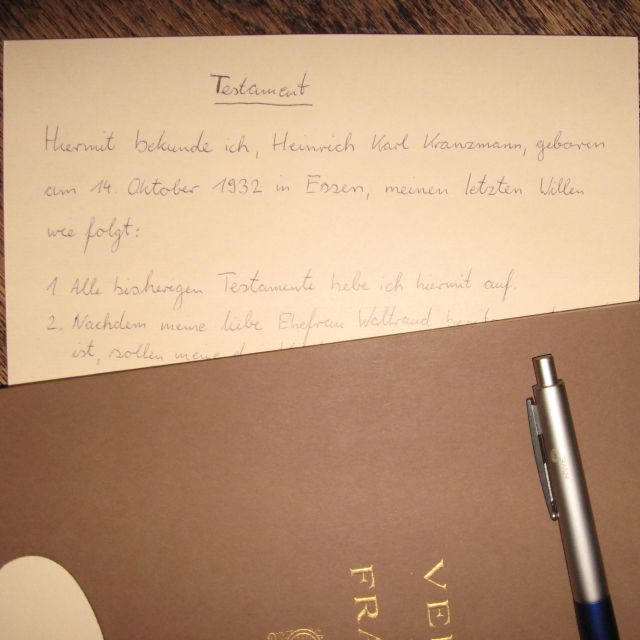 Testament
Hiermit bekunde ich, Heinrich Karl Kranzmann, geboren
am 14. Oktober 1932 in Essen, meinen letzten Willen
wie folgt:
1 Alle bisherigen Testamente hebe ich hiermit auf.
2. Nachdem meine liebe Ehefrau Waltraud
ist, sollen meine
VE
FRA